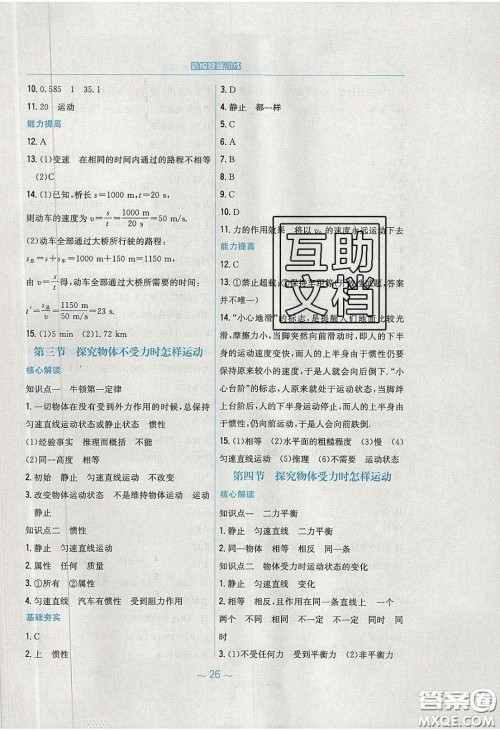 10. 0.585　1　35.1
11. 20　运动
能力提高
12. A
13. (1)变速　在相同的时间内通过的路程不相等
(2)C
14. (1)已知,桥长 s=1000 m,t=20 s,
则动车的速度为 v=s/t=1000 m/20 s=50 m/s.
(2)动车全部通过大桥所行驶的路程:
s总=s+s车=1000 m+150 m=1150 m,
由 v=s/t 得,动车全部通过大桥所需要的时间:
t′=s总/v=1150 m/50 m/s=23 s.
15. (1)5 min　(2)1.72 km
第三节　探究物体不受力时怎样运动
核心解读
知识点一　牛顿第一定律
1. 一切物体在没有受到外力作用的时候,总保持
匀速直线运动状态或静止状态　惯性
(1)经验事实　推理而概括　不能
(2)同一高度　相等
2. 初始　静止　匀速直线运动　不改变
3. 改变物体运动状态　不是维持物体运动　运动
状态
知识点二　惯性
1. 静止　匀速直线运动
2. 属性　任何　质量
3. ①所有　②静止
4. 匀速直线　汽车有惯性　受到阻力作用
基础夯实
1. C
2. 上　惯性
3. D
4. 静止　都一样
5. C
6. B
7. C
8. C
9. C
10. D
11. 力的作用效果　将以 的速度永远运动下去
能力提高
12. C
13. ①禁止超载 ②保持车距
并不唯一)
14. “小心地滑”的标志,是提
滑,摩擦力小,当脚突然向前滑动时,即人的下半
身的运动速度变快,而人的上半身由于惯性仍要
保持原来的速度,所以人就会向后倒下.“小
心台阶”的标志,人原来处于运动状态,当脚绊
上台阶时,人的下半身运动停止,而上半身由于
惯性,仍向前运动,于是人就向前跌倒.
15. (1)相等　(2)水平面的粗糙程度　(3)慢　(4)
匀速直线　(5)推理　(6)不需要　运动状态
第四节　探究物体受力时怎样运动
核心解读
知识点一　二力平衡
1. 静止　匀速直线　二力平衡
2. 同一物体　相等　相反　同一条
知识点二　物体受力时运动状态的变化
1. 静止　匀速直线运动
2. 相同　大小相等　作用在同一条直线上　一个
两个　不同　相同　相反　有　可以　没有
不同
3. (1)不受任何力　受到平衡力　(2)非平衡力
～ 26 ～
互助
文档
答案圈
MXQE.COM